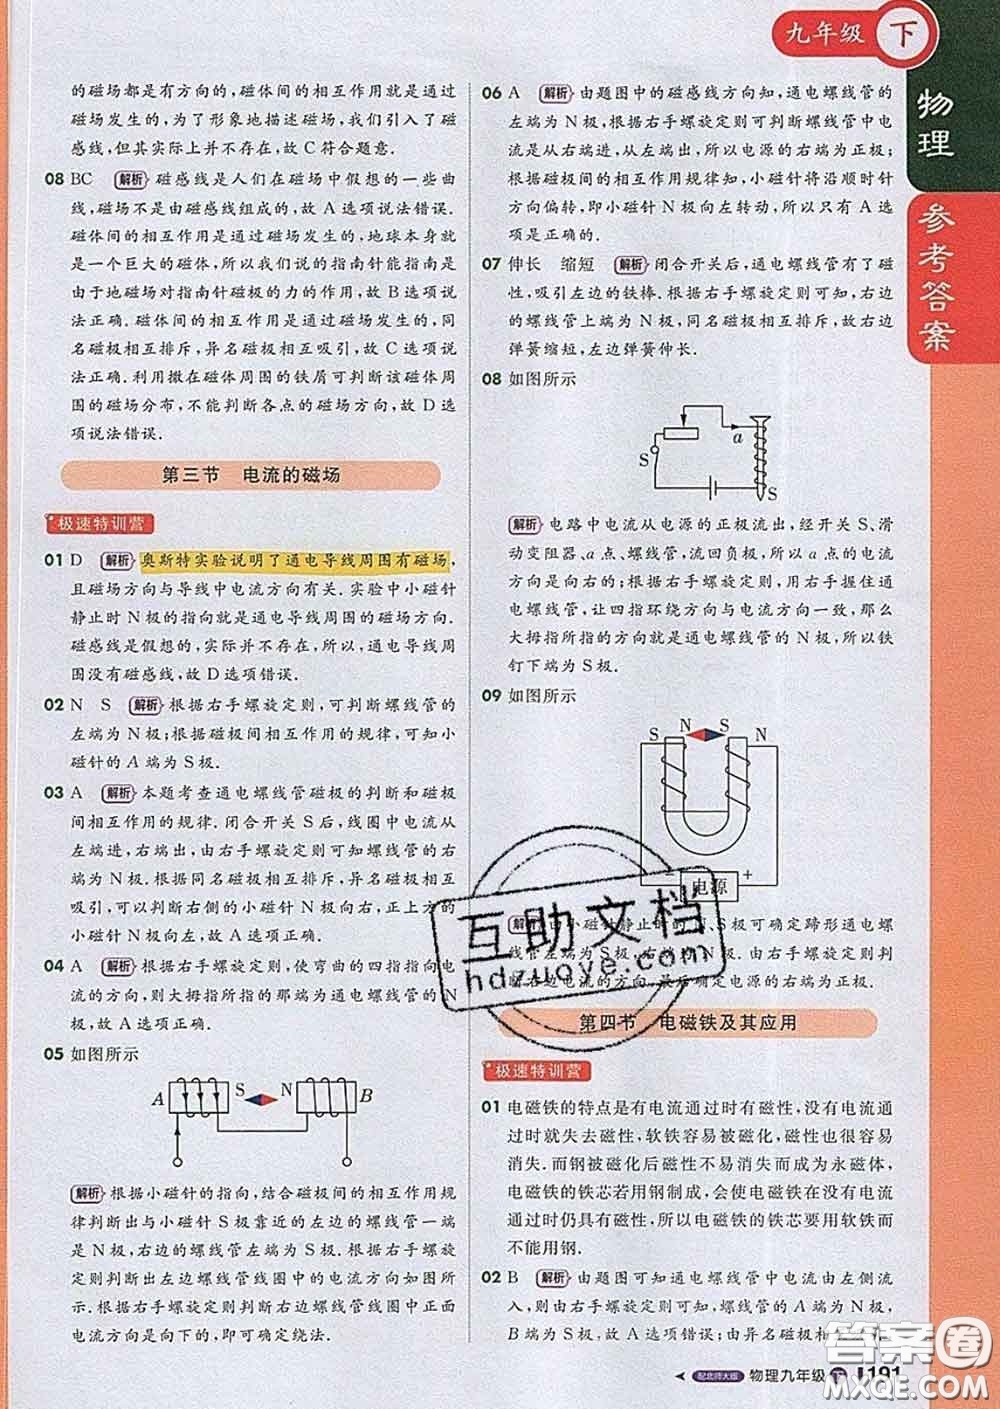 九年级 下
物理
参考答案
的磁场都是有方向的,磁体间的相互作用就是通过
磁场发生的,为了形象地描述磁场,我们引入了磁
感线,但其实际上并不存在,故C符合题意.
08 BC 解析 磁感线是人们在磁场中假想的一些曲
线,磁场不是由磁感线组成的,故A选项说法错误.
磁体间的相互作用是通过磁场发生的,地球本身就
是一个巨大的磁体,所以我们说的指南针能指南是
由于地磁场对指南针磁极的力的作用,故B选项说
法正确.磁体间的相互作用是通过磁场发生的,同
名磁极相互排斥,异名磁极相互吸引,故C选项说
法正确.利用撒在磁体周围的铁屑可判断该磁体周
围的磁场分布,不能判断各点的磁场方向,故D选
项说法错误.
第三节 电流的磁场
极速特训营
01 D 解析 奥斯特实验说明了通电导线周围有磁场,
且磁场方向与导线中电流方向有关.实验中小磁针
静止时N极的指向就是通电导线周围的磁场方向.
磁感线是假想的,实际并不存在,所以,通电导线周
围没有磁感线,故D选项错误.
02 N S 解析 根据右手螺旋定则,可判断螺线管的
左端为N极;根据磁极间相互作用的规律,可知小
磁针的A端为S极.
03 A 解析 本题考查通电螺线管磁极的判断和磁极
间相互作用的规律.闭合开关S后,线圈中电流从
左端进,右端出,由右手螺旋定则可知螺线管的右
端为N极,根据同名磁极相互排斥、异名磁极相互
吸引,可以判断右侧的小磁针N极向右,正上方的
小磁针N极向左,故A选项正确.
04 A 解析 根据右手螺旋定则,使弯曲的四指指向电
流的方向,则大拇指所指的那端为通电螺线管的N
极,故A选项正确.
05 如图所示
A S N B
解析 根据小磁针的指向,结合磁极间的相互作用规
律判断出与小磁针S极靠近的左边的螺线管一端
是N极,右边的螺线管左端为S极.根据右手螺旋
定则判断出左边螺线管线圈中的电流方向如图所
示.根据右手螺旋定则判断右边螺线管线圈中正面
电流方向是向下的,即可确定绕法.
06 A 解析 由题图中的磁感线方向知,通电螺线管的
左端为N极,根据右手螺旋定则可判断螺线管中电
流是从右端进,从左端出,所以电源的右端为正极;
根据磁极间的相互作用规律知,小磁针将沿顺时针
方向偏转,即小磁针N极向左转动,所以只有A选
项是正确的.
07 伸长 缩短 解析 闭合开关后,通电螺线管有了磁
性,吸引左边的铁棒.根据右手螺旋定则可知,右边
的螺线管上端为N极,同名磁极相互排斥,故右边
弹簧缩短,左边弹簧伸长.
08 如图所示
S a S
解析 电路中电流从电源的正极流出,经开关S、滑
动变阻器、a点、螺线管,流回负极,所以a点的电流
方向是向右的;根据右手螺旋定则,用右手握住通
电螺线管,让四指环绕方向与电流方向一致,那么
大拇指所指的方向就是通电螺线管的N极,所以铁
钉下端为S极.
09 如图所示
S N S N
− 电源 +
解析 由小磁针静止时的N、S极可确定蹄形通电螺
线管左端为S极、右端为N极.由右手螺旋定则判
断左右边电流的方向,最后确定电源的右端为正极.
第四节 电磁铁及其应用
极速特训营
01 电磁铁的特点是有电流通过时有磁性,没有电流通
过时就失去磁性,软铁容易被磁化,磁性也很容易
消失.而钢被磁化后磁性不易消失而成为永磁体,
电磁铁的铁芯若用钢制成,会使电磁铁在没有电流
通过时仍具有磁性,所以电磁铁的铁芯要用软铁而
不能用钢.
02 B 解析 由题图可知通电螺线管中电流由左侧流
入,则由右手螺旋定则可知,螺线管的A端为N极,
B端为S极,故A选项错误;由异名磁极相互
配北师大版 物理九年级 下 191
互助文档
hdzuoye.com
答案圈
MXQE.COM